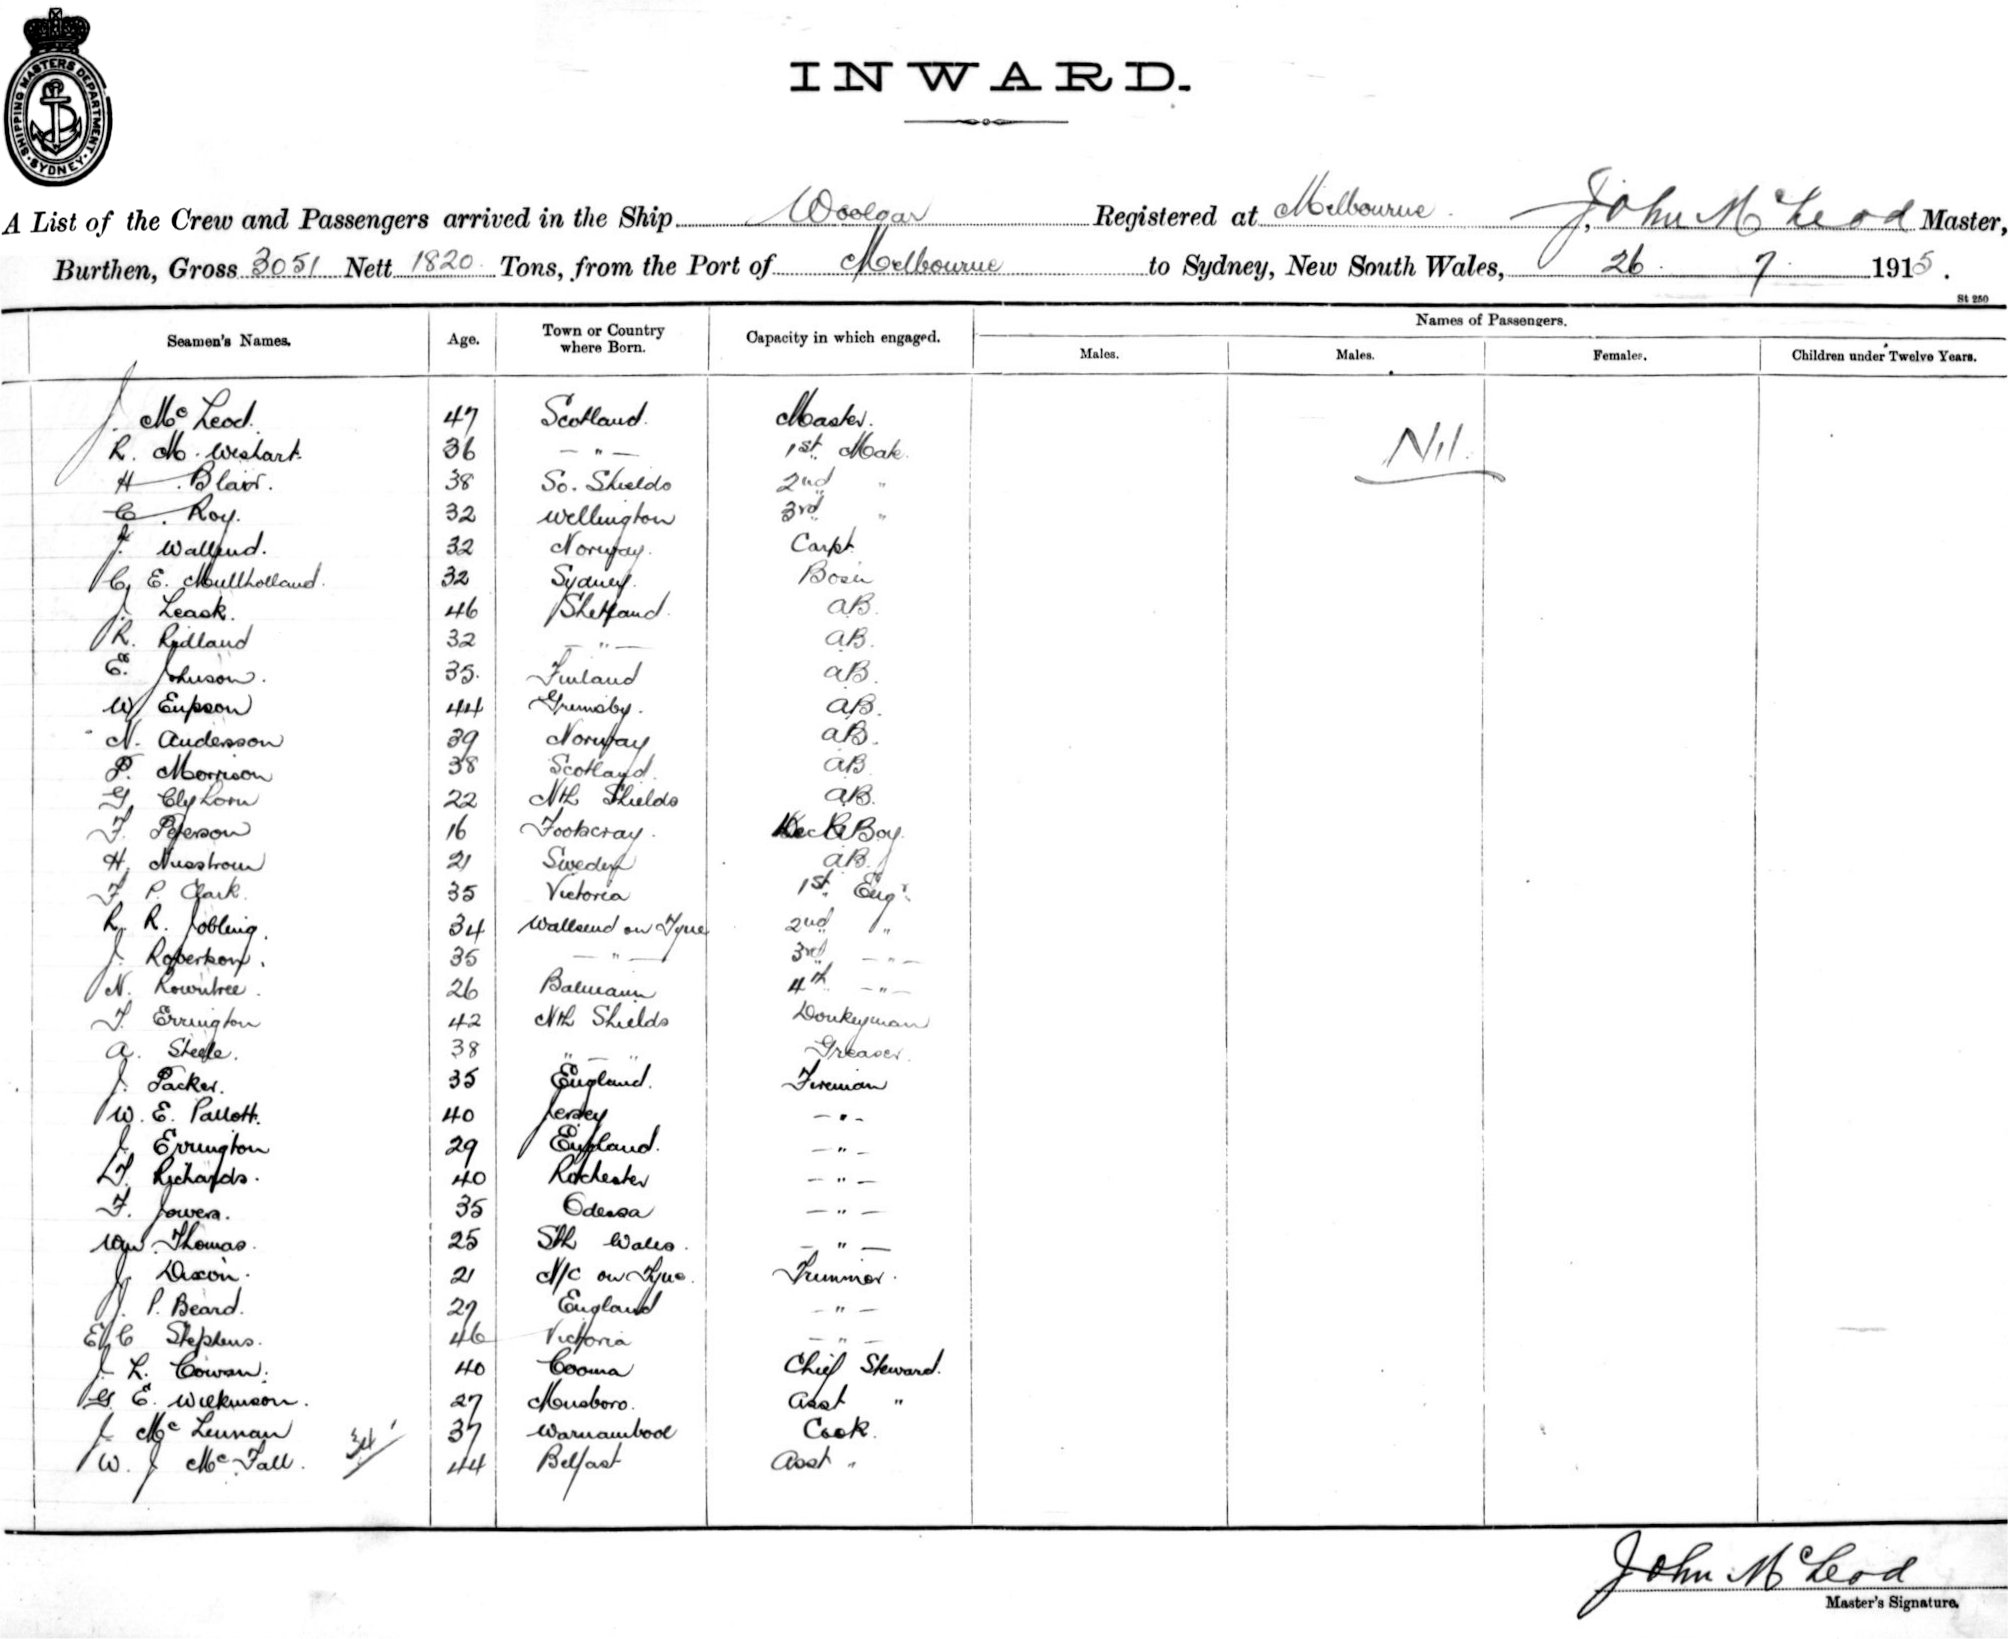 SHIPPING MASTERS DEPARTMENT. SYDNEY
INWARD.
A List of the Crew and Passengers arrived in the Ship Woolgar Registered at Melbourne. John McLeod Master,
Burthen, Gross 3051 Nett 1820 Tons, from the Port of Melbourne to Sydney, New South Wales, 26 7 1915.
St 250
Seamen's Names. Age. Town or Country where Born. Capacity in which engaged. Names of Passengers.
Males. Males. Females. Children under Twelve Years.
J. Mc Leod. 47 Scotland. Master.
Nil.
R. M. Wishart. 36 — " — 1st Mate
H. Blair. 38 So. Shields 2nd "
C. Roy. 32 Wellington 3rd "
J. Wallend. 32 Norway. Carpt.
C. E. Mullholland. 32 Sydney. Bosn
J. Leask. 46 Shetland. AB.
R. Ridland 32 — " — AB.
E. Johnson. 35. Finland AB.
W. 44 Grimsby. AB.
N. Andersson 39 Norway AB.
P. Morrison 38 Scotland. AB
G. Clyhorn 22 Nth Shields AB.
F. Peterson 16 Footscray. Deck Boy.
H. 21 Sweden AB.
F. P. Clark. 35 Victoria 1st Engr.
R. R. Jobling. 34 Wallsend on Tyne 2nd "
J. Robertson. 35 — " — 3rd — " —
N. Rowntree. 26 Balmain 4th — " —
T. Errington 42 Nth Shields Donkeyman
A. Steele. 38 " — " Greaser.
J. Packer. 35 England. Fireman
W. E. Pallott. 40 Jersey — " —
J. Errington 29 England. — " —
T. Richards. 40 Rochester — " —
F. Jowers. 35 Odessa — " —
Wm. Thomas. 25 Sth Wales. — " —
J. Dixon. 21 N/C on Tyne. Trimmer.
J. P. Beard. 27 England — " —
E. C Stephens. 46 Victoria — " —
J. L. Cowan. 40 Cooma Chief Steward.
G. E. Wilkinson. 27 Musboro. Asst "
J. Mc Lennan 37 Warnambool Cook.
W. J Mc Fall. 34 44 Belfast Asst "
John McLeod
Master's Signature.